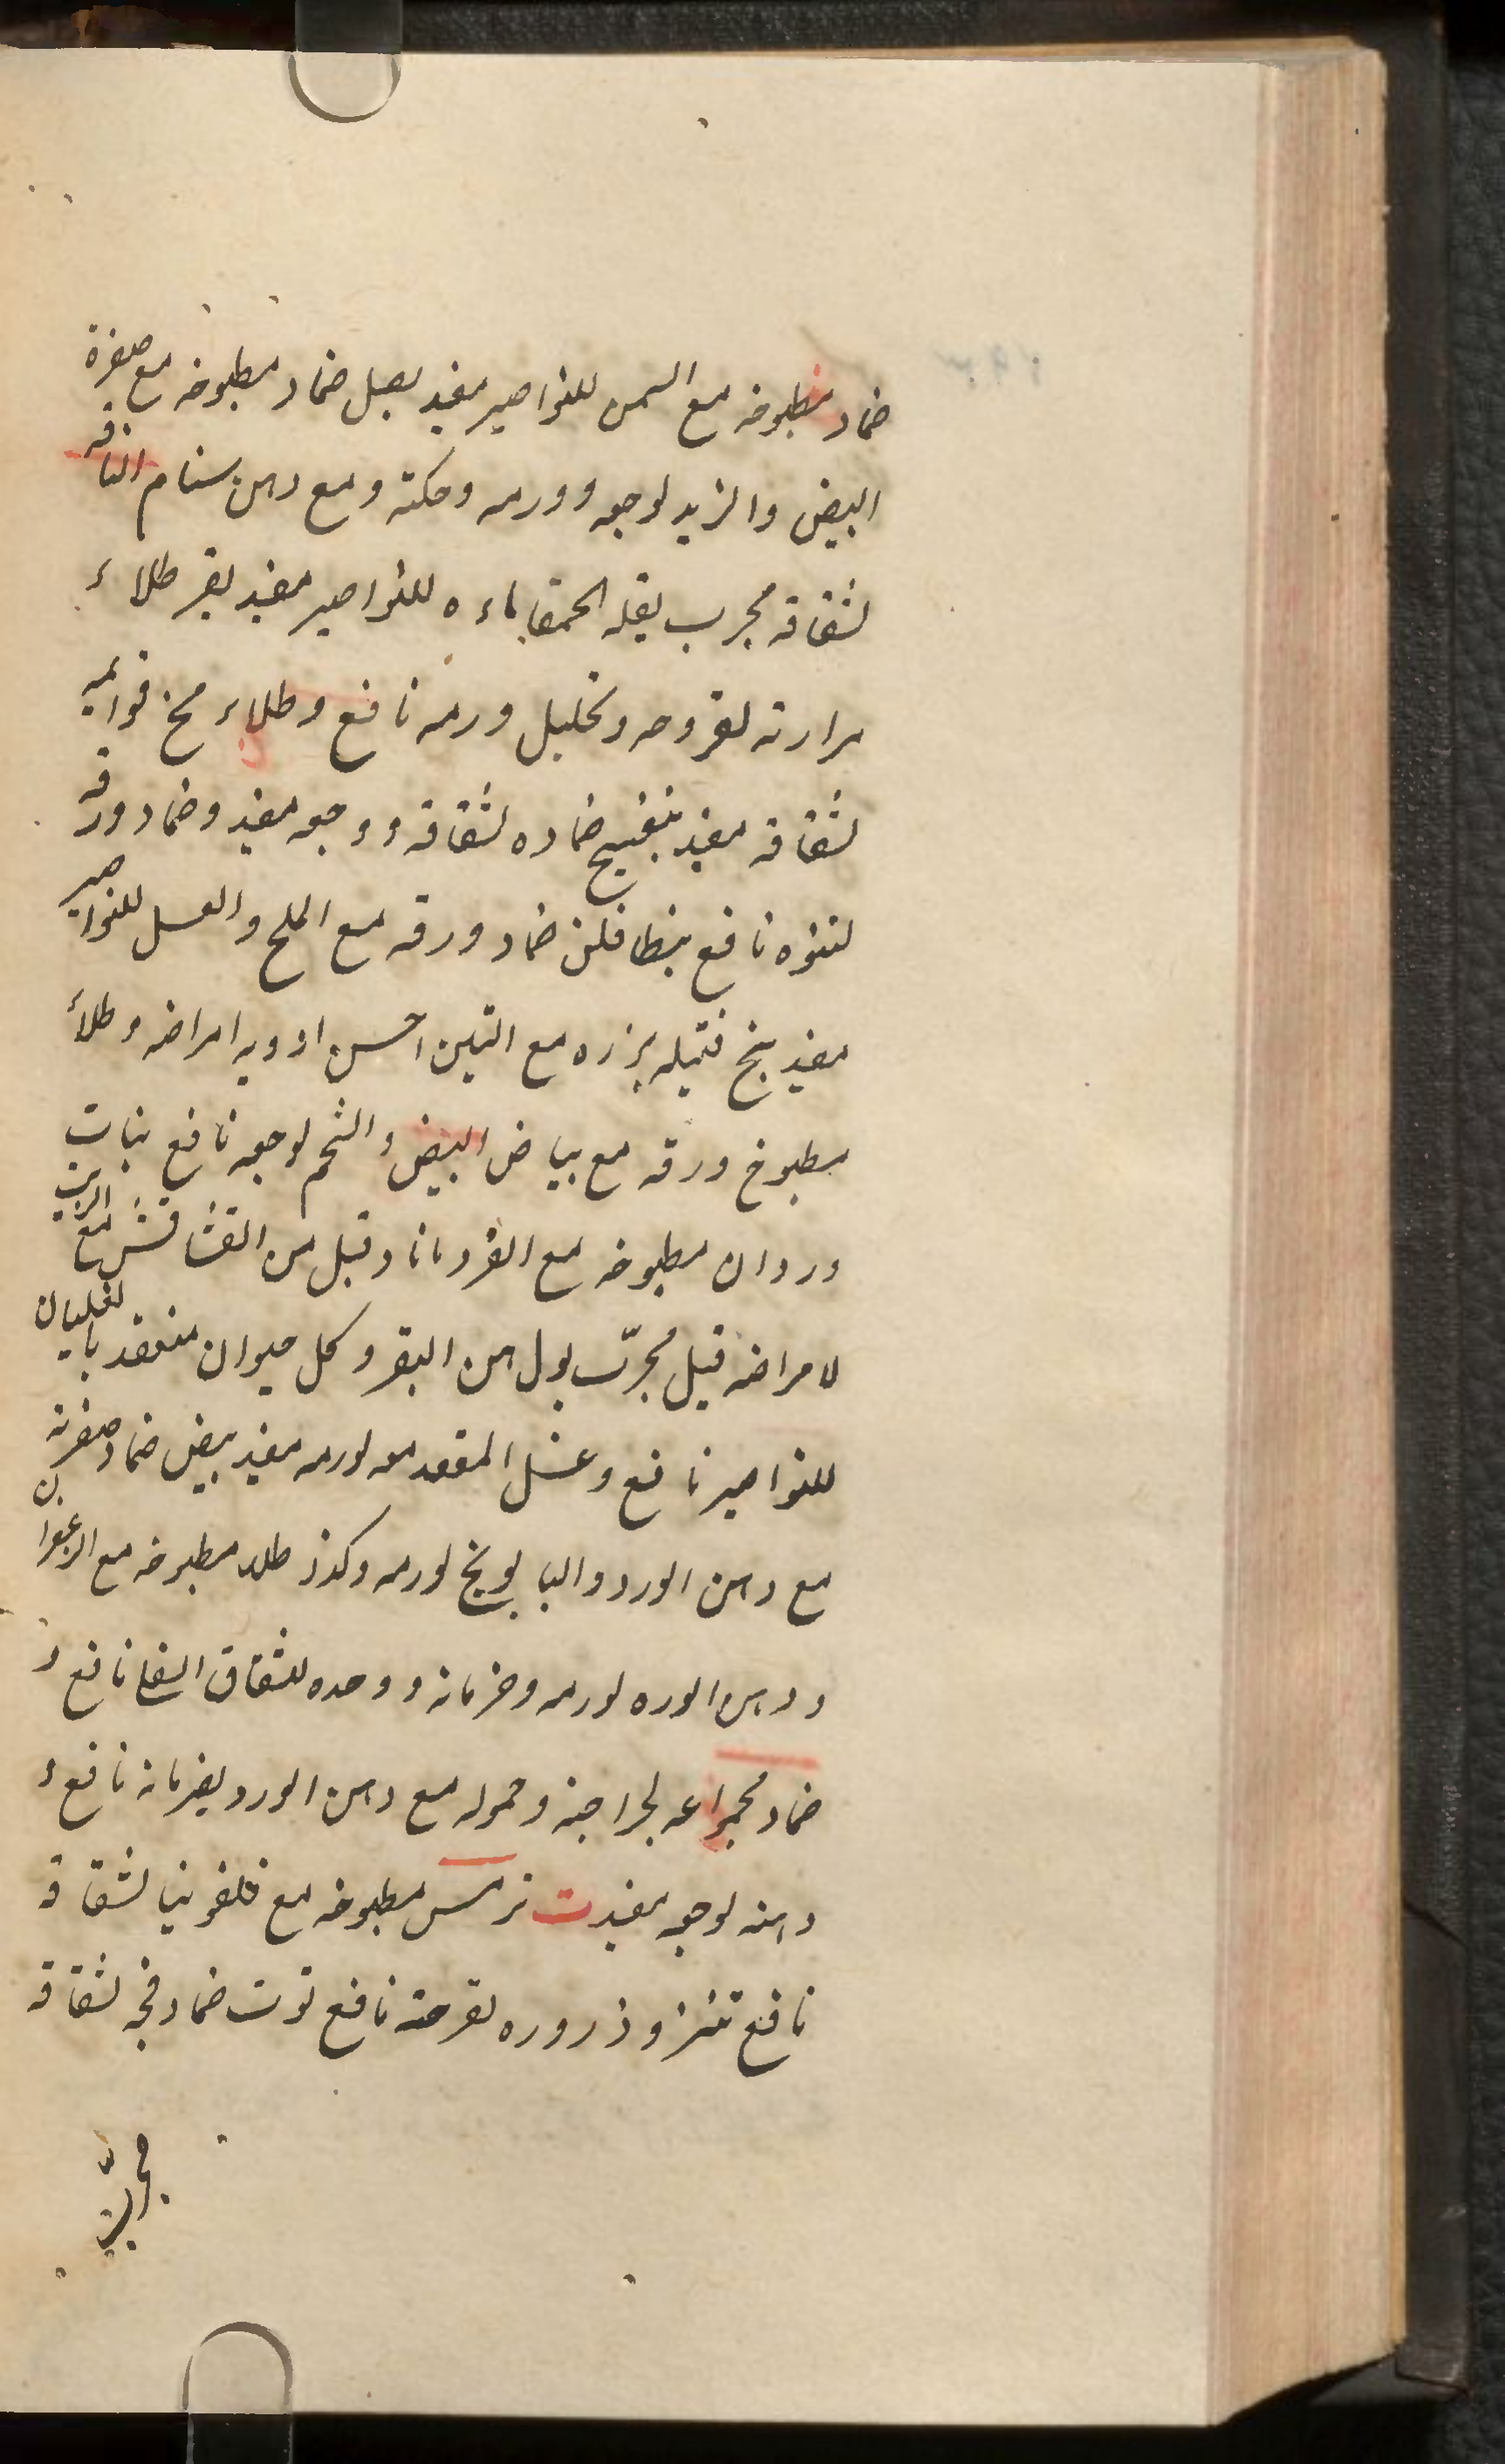 ضماد مطبوخه مع السمن للنواصير مفيد بصل ضماد مطبوخه مع صفرة
البيض والزبد لوجعه وورمه وحكته ومع دهن سنام الناقه
لشقاقه مجرب بقله الحمقا ماءه للنواصير مفيد بقر طلاء
مرارته لقروحه وتحليل ورمه نافع وطلاء مخ قوائمه
لشقاقه مفيد بنفسج ضماده لشقاقه ووجعه مفيد وضماد ورقه
لنتوه نافع بنطافلن ضماد ورقه مع الملح والعسل للنواصير
مفيد بنج فتيله بزره مع التين احسن ادويه امراضه وطلاء
مطبوخ ورقه مع بياض البيض والشحم لوجعه نافع بنات
وردان مطبوخه مع القردمانا وقيل من مع الزيت
لامراضه قيل مجرّب بول من البقر وكل حيوان منعقد بالغليان
للنواصير نافع وغسل المقعد معه لورمه مفيد بيض ضماد صفرته
مع دهن الورد والبابونج لورمه وكذر طلاء مطبوخه مع
ودهن الورد لورمه وضربانه ووحده للشقاق نافع و
ضماد لجراحته وحموله مع دهن الورد لضربانه نافع و
دهنه لوجعه مفيد ت ترمس مطبوخه مع قلفونيا لشقاقه
نافع وذروره لقرحته نافع توت ضماد فجه لشقاقه